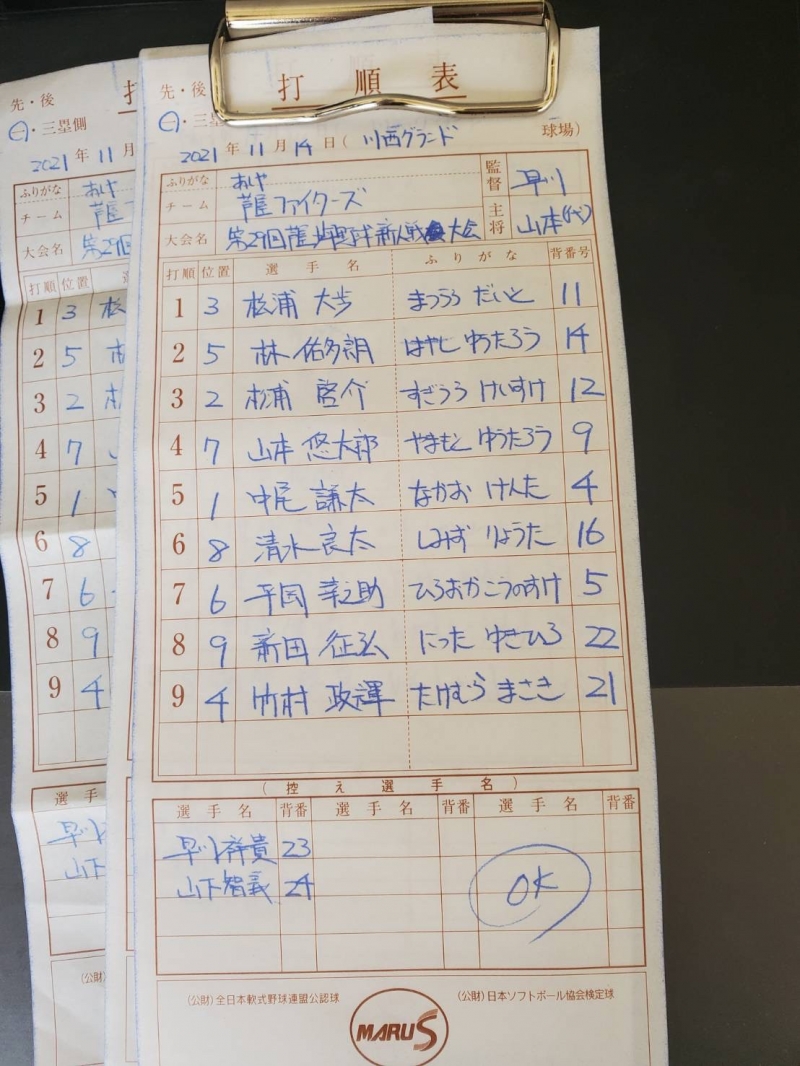 先・後
打
先・後
打順表
㊀・三塁側
㊀・三塁
2021年11月
2021年11月14日(川西グランド 球場)
ふりがな
チーム
大会名
ふりがな あしや
チーム 芦屋ファイターズ
監督 早川
主将 山本(代)
大会名 第29回芦屋 新人戦大会
打順 位置
1 3
2 5
3 2
4 7
5 1
6 8
7 6
8 9
9 4
打順 位置 選手名 ふりがな 背番号
1 3 松浦 大歩 まつうら だいと 11
2 5 林 佑多朗 はやし ゆうたろう 14
3 2 杉浦 啓介 すぎうら けいすけ 12
4 7 山本 悠太郎 やまもと ゆうたろう 9
5 1 中尾 謙太 なかお けんた 4
6 8 清水 良太 しみず りょうた 16
7 6 平岡 幸之助 ひらおか こうのすけ 5
8 9 新田 征弘 にった ゆきひろ 22
9 4 竹村 政輝 たけむら まさき 21
(控え選手名)
選手
早川
山下
選手名 背番 選手名 背番 選手名 背番
早川祥貴 23
山下智義 24
OK
(公財)
(公財)全日本軟式野球連盟公認球
(公財)日本ソフトボール協会検定球
MARU S